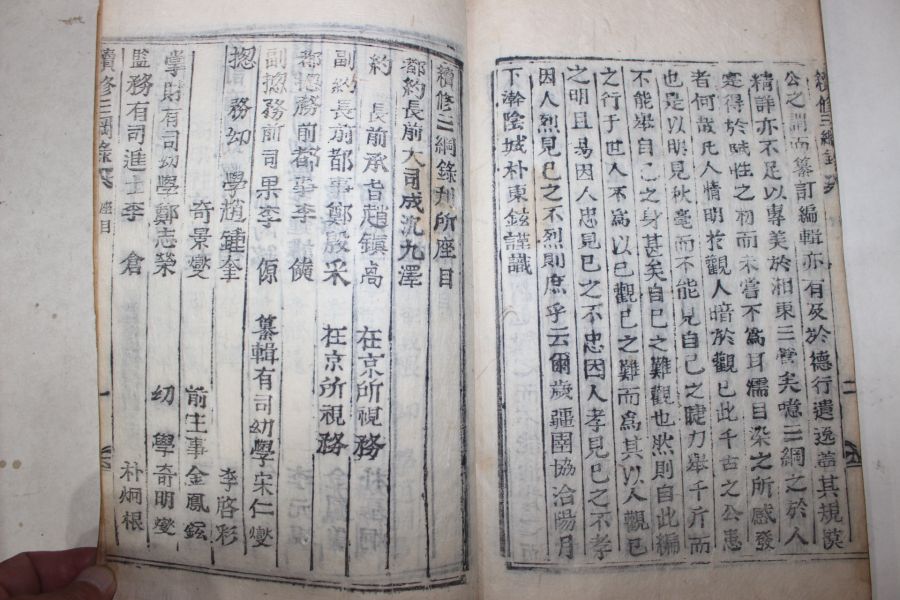 續修三綱錄
公之謂而纂訂編輯亦有及於德行遺逸蓋其規謨
精詳亦不足以專美於湘東三管矣噫三綱之於人
寔得於賦性之初而未嘗不爲耳濡目染之所感發
者何哉凡人情明於觀人暗於觀已此千古之公患
也是以明見秋毫而不能見自己之睫力舉千斤而
不能舉自己之身甚矣自已之難觀也然則自此編
之行于世人不爲以已觀已之難而爲其以人觀已
之明且易因人忠見已之不忠因人孝見已之不孝
因人烈見已之不烈則庶乎云爾歲彊圉協洽陽月
下澣陰城朴東鉉謹識
續修三綱錄刊所座目
都約長前大司成沈九澤
約 長前承旨趙鎭高 在京所視務
副約長前都事鄭殷采 在京所視務
都摠務前都事李
副摠務前司果李 纂輯有司幼學宋仁燮
摠 務幼 學趙鍾奎 李啓彩
奇景燮 前主事金鳳鉉
掌財有司幼學鄭志榮 幼 學奇明燮
監務有司進士李 倉 朴炯根
續修三綱錄 座目 一